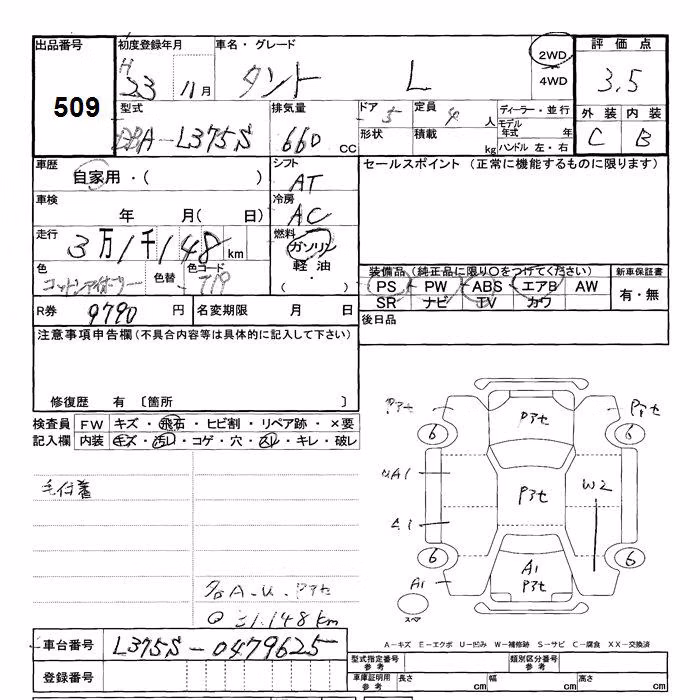 出品番号 初度登録年月 車名・グレード 2WD 評価点
509 H 23 11月 タント L 4WD 3.5
型式 排気量 ドア 5 定員 4 人 ディーラー・並行 外装 内装
DBA-L375S 660 cc 形状 積載 kg モデル年式 年 C B
ハンドル 左・右
車歴 シフト セールスポイント (正常に機能するものに限ります)
自家用・( ) AT
車検 冷房
年 月( 日) AC
走行 燃料
3万1千148km ガソリン
色 色替 色コード 軽油
( ・ )
装備品 (純正品に限り○をつけてください) 新車保証書
PS PW ABS エアB AW 有・無
SR ナビ TV カワ
R券 9790 円 名変期限 月 日 後日品
注意事項申告欄(不具合内容等は具体的に記入して下さい)
修復歴 有 〔箇所 〕
検査員 FW キズ・飛石・ヒビ割・リペア跡・×要
記入欄 内装 キズ・汚レ・コゲ・穴・スレ・キレ・破レ
アセ アセ アセ
6 6
毛付着 UA1 アセ W2
A1
6 6
A1 A1 アセ
スペア
A-U.アセ
31.148km
A-キズ E-エクボ U-凹み W-補修跡 S-サビ C-腐食 XX-交換済
車台番号 L375S-0479625
登録番号
型式指定番号 参考 類別区分番号 参考
車庫証明用 参考 長さ cm 幅 cm 高さ cm